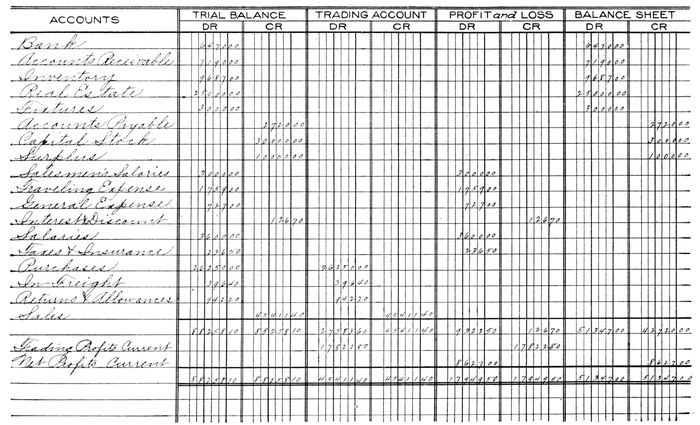 ACCOUNTS TRIAL BALANCE TRADING ACCOUNT PROFIT and LOSS BALANCE SHEET
DR CR DR CR DR CR DR CR
Bank 647000 647000
Accounts Receivable 719000 719000
Inventory 968700 968700
Real Estate 2500000 2500000
Fixtures 300000 300000
Accounts Payable 272000 272000
Capital Stock 3000000 300000
Surplus 1000000 100000
Salesmen's Salaries 300000 300000
Traveling Expense 175900 175900
General Expense 72700 72700
Interest & Discount 12670 12670
Salaries 360000 360000
Taxes & Insurance 23650 23650
Purchases 2625000 2625000
In-Freight 39640 39640
Returns & Allowances 94220 94220
Sales 4541140 4541140
8825810 8825810 2758860 4541140 932250 12670 5134700 4272000
Trading Profits Current 1782280 1782280
Net Profits Current 862700 862700
8825810 8825810 4541140 4541140 1794950 1794950 5134700 5134700